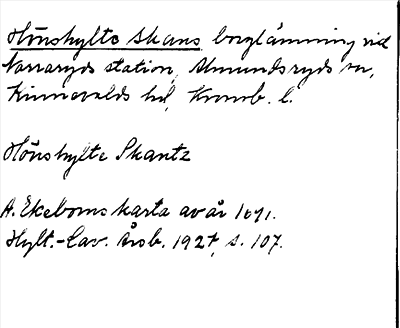 Hönshylte Skans borglämning vid
Norraryds station, Almundsryds sn,
Kinnevalds hd, Kronob. l.
Hönshylte Skantz
A. Ekeboms karta av år 1691.
Hylt.-Cav. Årsb. 1927, s. 107.